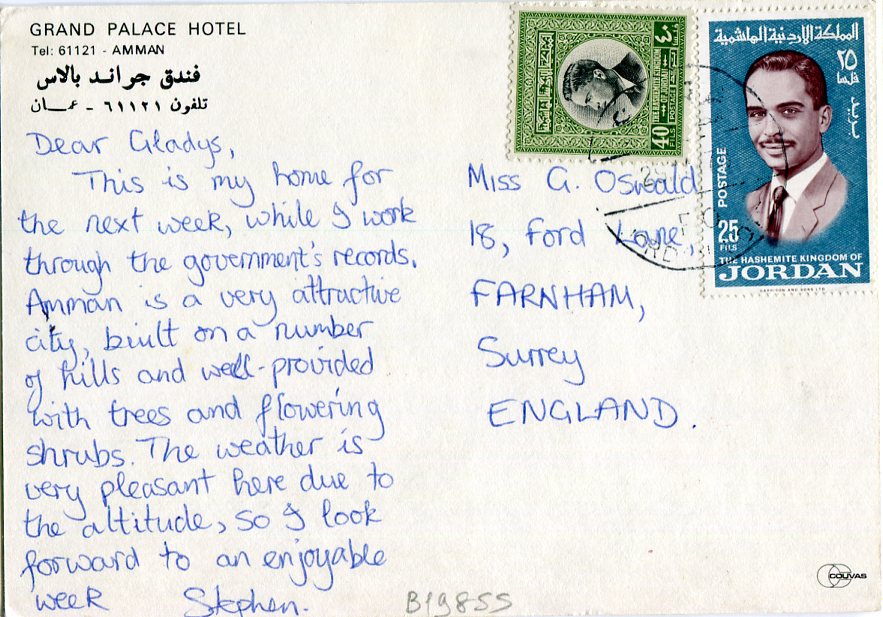 GRAND PALACE HOTEL
Tel: 61121 - AMMAN
فندق جراند بالاس
تلفون ٦١١٢١ - عمـان
Dear Gladys,
This is my home for
the next week, while I work
through the government's records.
Amman is a very attractive
city, built on a number
of hills and well-provided
with trees and flowering
shrubs. The weather is
very pleasant here due to
the altitude, so I look
forward to an enjoyable
week Stephen.
B19855
Miss G. Oswald
18, Ford Lane,
FARNHAM,
Surrey
ENGLAND.
٤٠
THE HASHEMITE KINGDOM
OF JORDAN
POSTAGE
40
FILS
المملكة الاردنية الهاشمية
٢٥
فلسا
بريد
POSTAGE
25
FILS
THE HASHEMITE KINGDOM OF
JORDAN
COUVAS